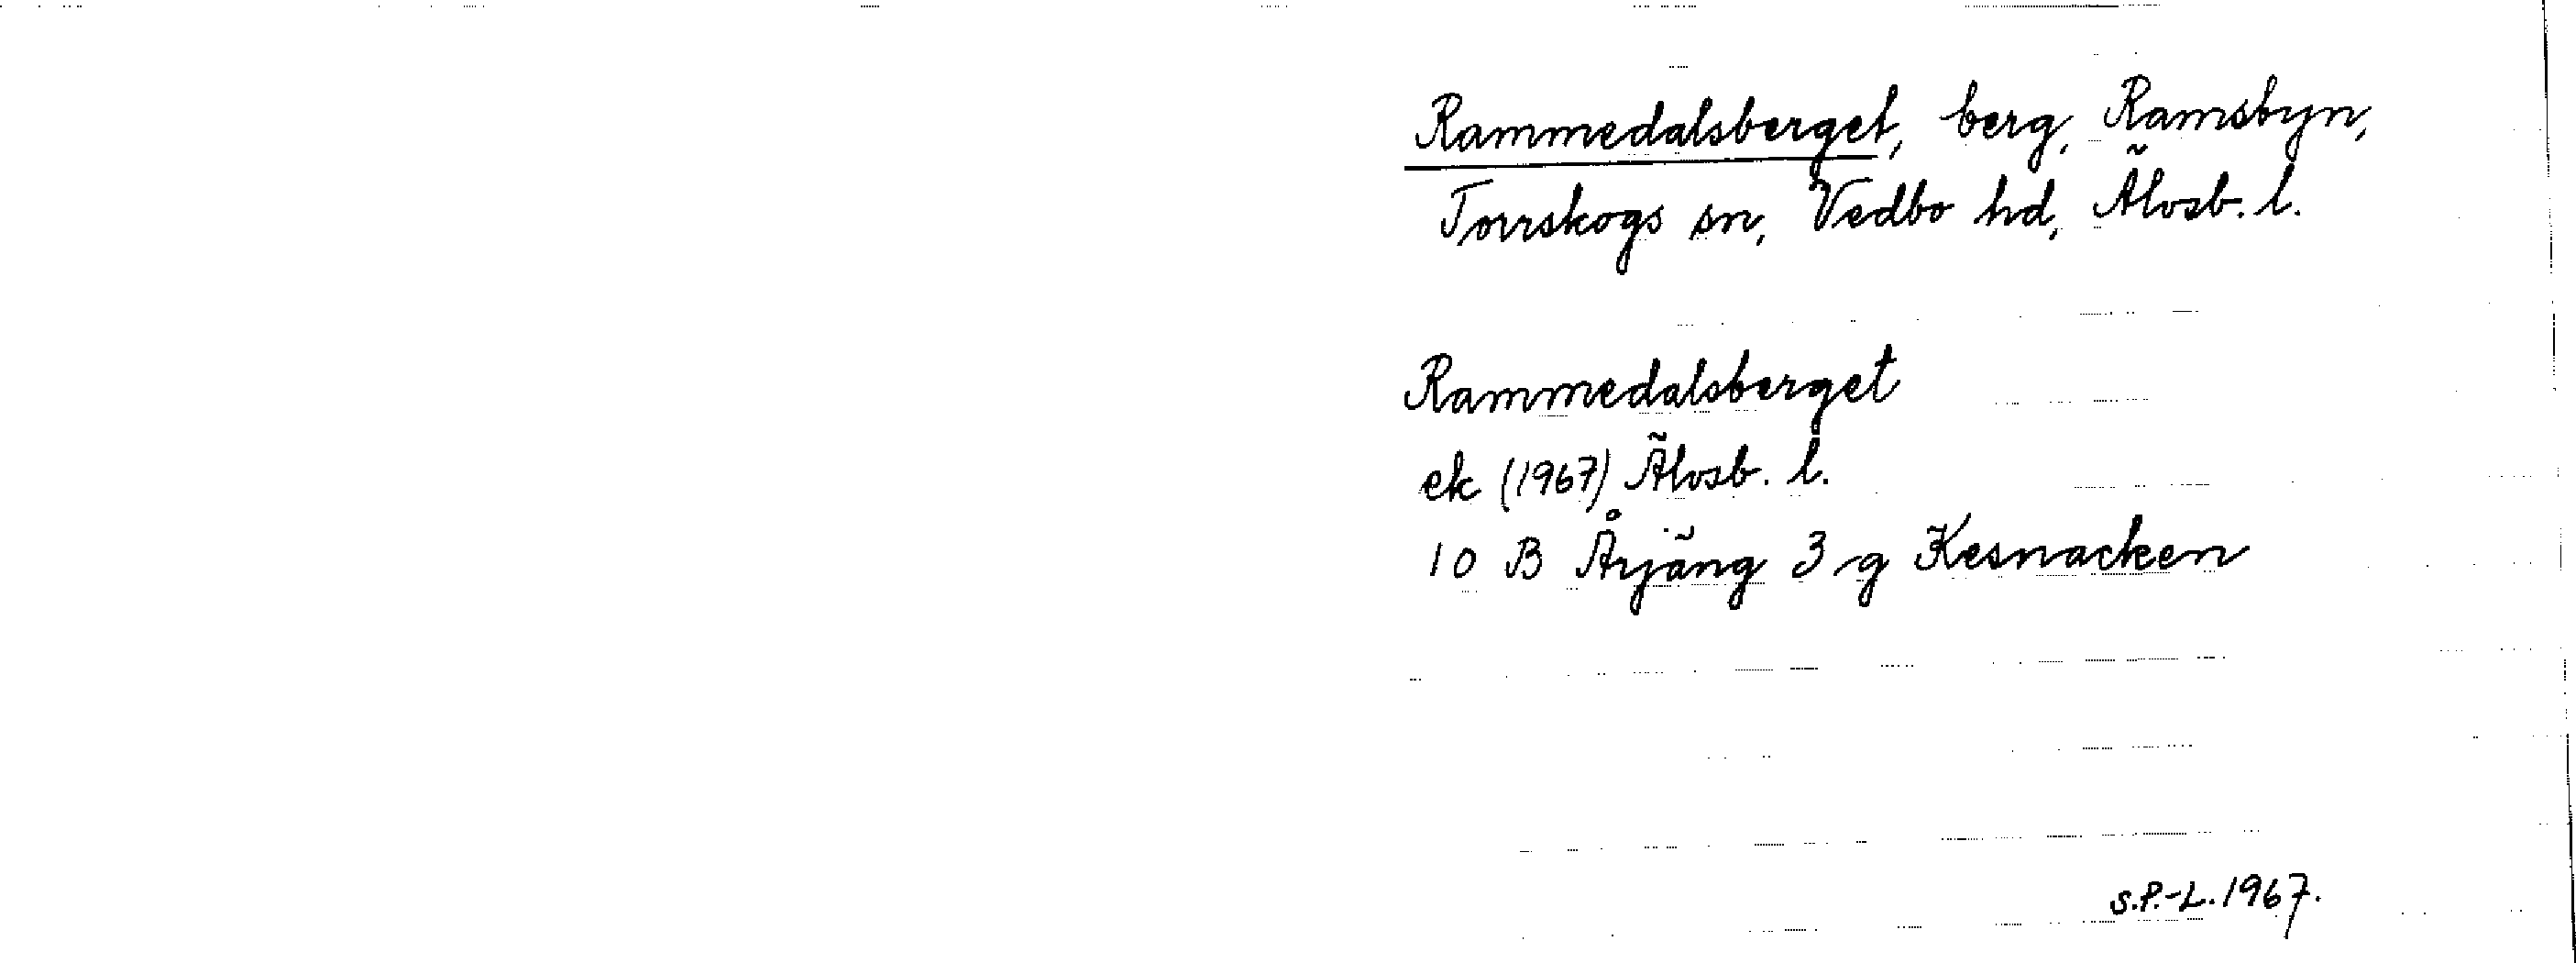 Rammedalsberget, berg, Ramsbyn,
Torrskogs sn, Vedbo hd, Älvsb. l.
Rammedalsberget
ek (1967) Älvsb. l.
10 B Årjäng 3 g Kesnacken
S.P.-L. 1967.